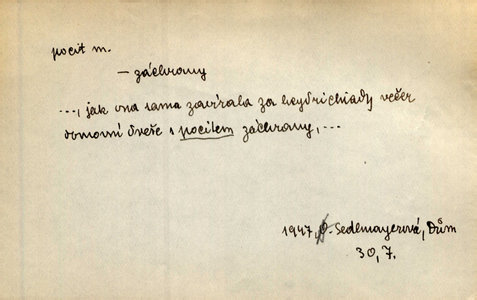 pocit m.
– záchrany
..., jak ona sama zavírala za heydrichiady večer
domovní dveře s pocitem záchrany, ...
1947, Sedlmayerová, Dům
30, 7.